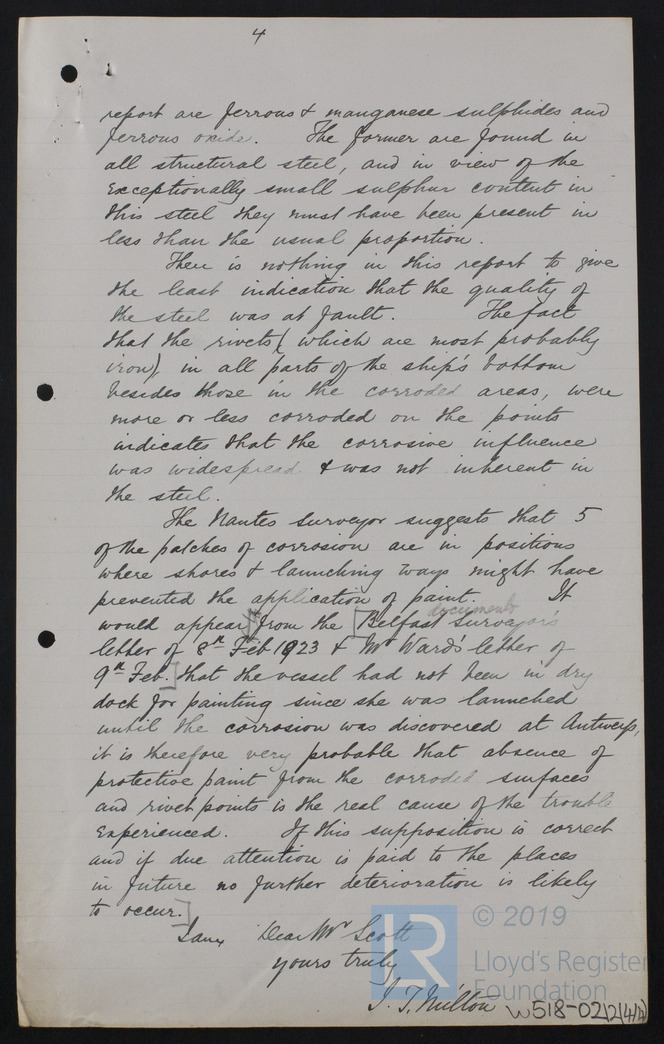 4
report are ferrous & manganese sulphides and
ferrous oxide. The former are found in
all structural steel, and in view of the
exceptionally small sulphur content in
this steel they must have been present in
less than the usual proportion.
There is nothing in this report to give
the least indication that the quality of
the steel was at fault. The fact
that the rivets (which are most probably
iron), in all parts of the ship's bottom
besides those in the corroded areas, were
more or less corroded on the points
indicates that the corrosive influence
was widespread & was not inherent in
the steel.
The Nantes Surveyor suggests that 5
of the patches of corrosion are in positions
where shores & launching ways might have
prevented the application of paint. It
documents
would appear from the [Belfast Surveyor's
letter of 8th Feb 1923 & Mr Ward's letter of
9th Feb.] that the vessel had not been in dry
dock for painting since she was launched
until the corrosion was discovered at Antwerp,
it is therefore very probable that absence of
protective paint from the corroded surfaces
and rivet points is the real cause of the trouble
experienced. If this supposition is correct
and if due attention is paid to the places
in future no further deterioration is likely
to occur.]
I am, Dear Mr Scott
yours truly
J. T. Milton
LR
© 2019
Lloyd's Register
Foundation
W518-0212(4/4)